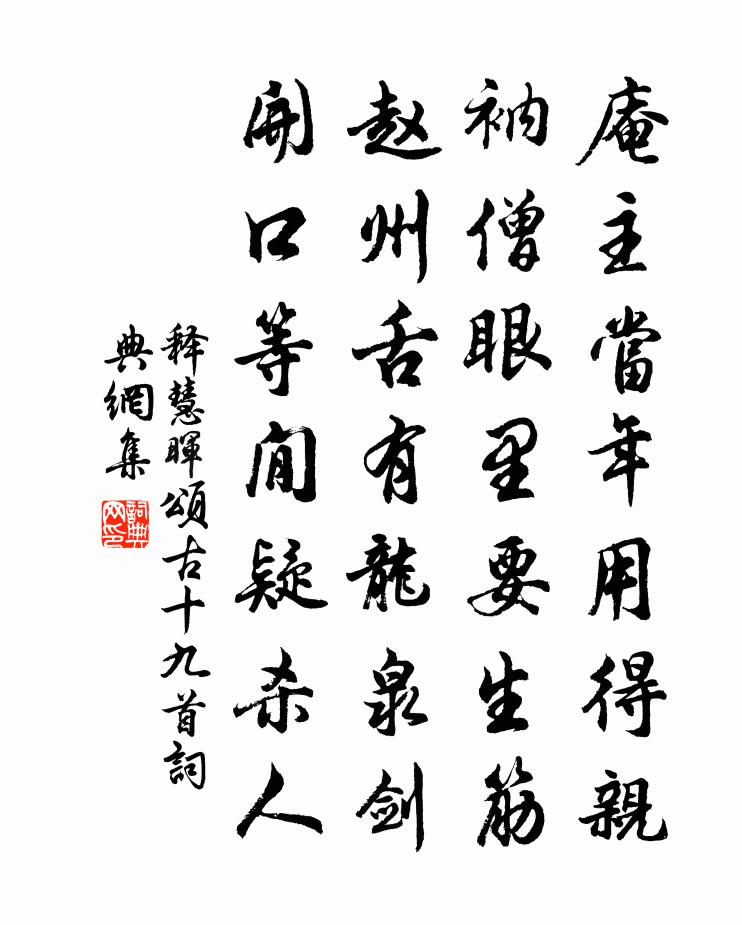 庵主當年用得親
衲僧眼里要生筋
赵州舌有龍泉剑
開口等閒疑杀人
释慧暉頌古十九首詞
典網集
詞典网印